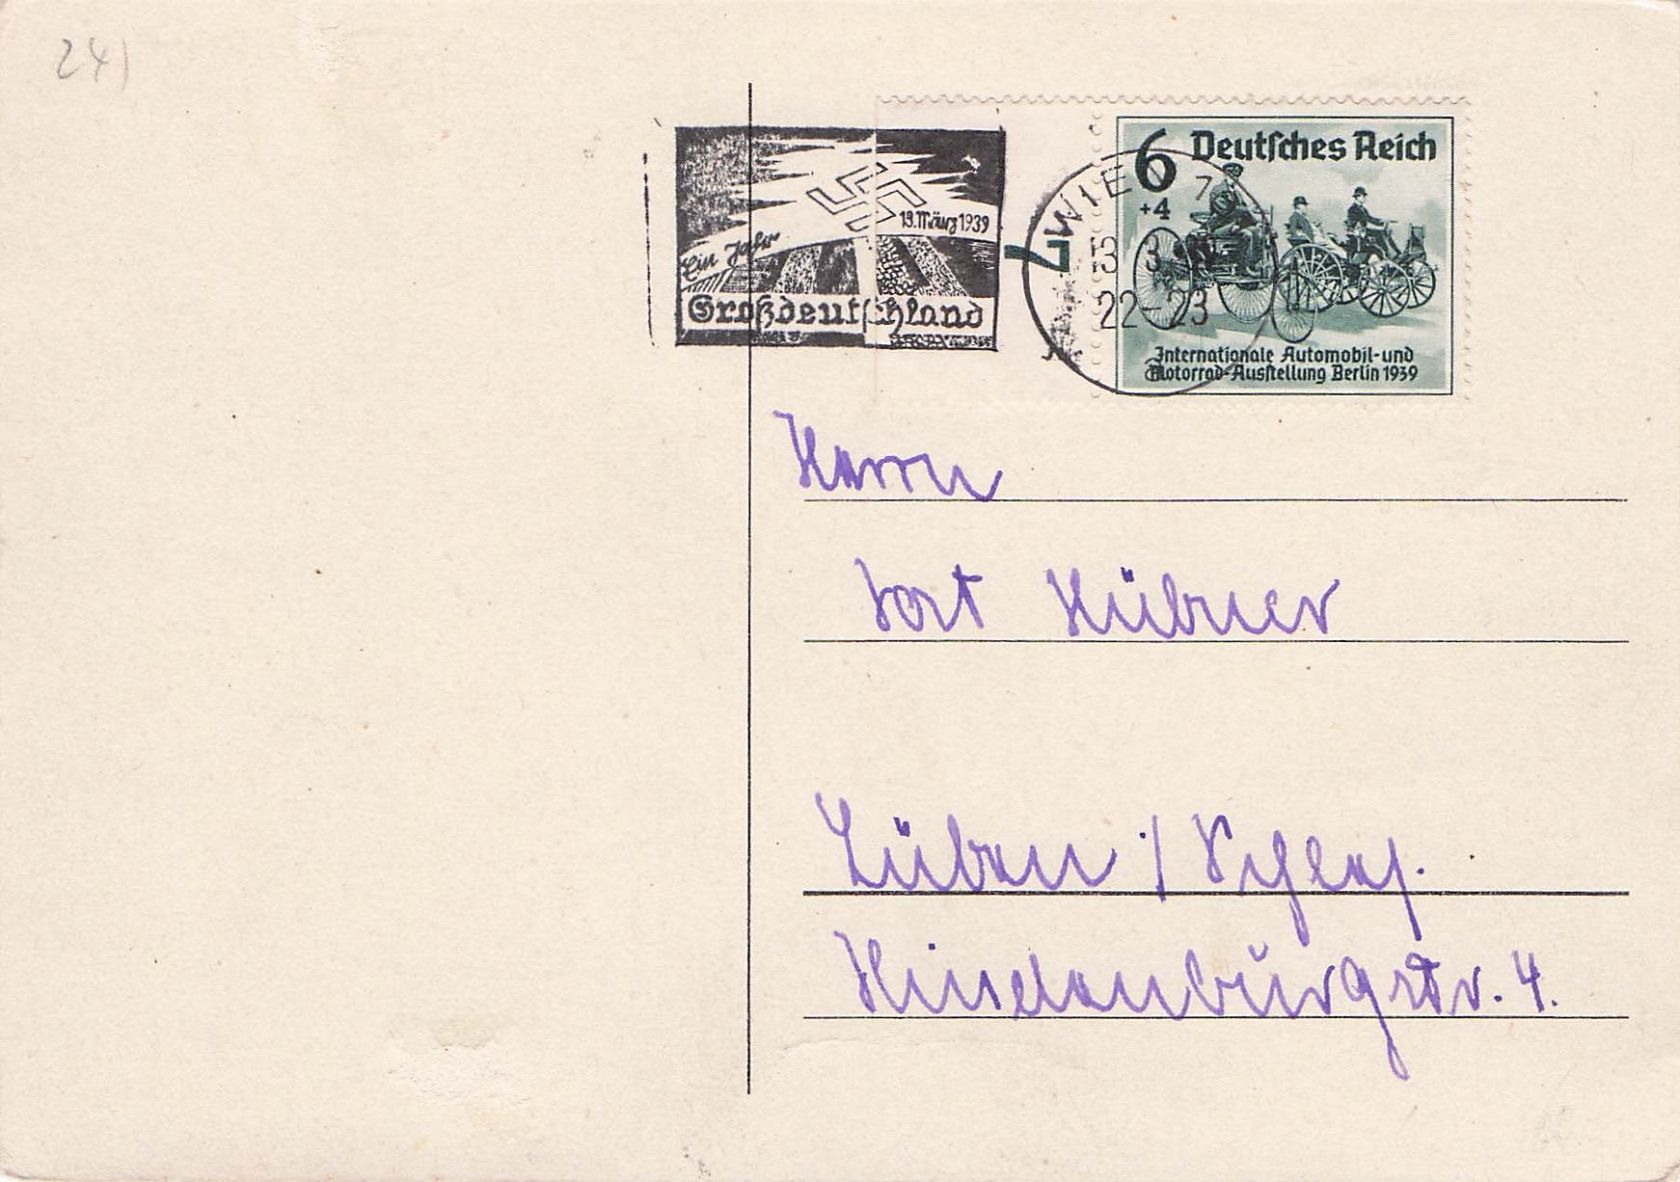 24)
Ein Jahr
13. März 1939
Großdeutschland
7
WIEN 7
13.3.
22-23
6
+4
Deutsches Reich
Internationale Automobil-und
Motorrad-Ausstellung Berlin 1939
Herrn
Hübner
Lüben / Schles.
Hindenburgstr. 4.